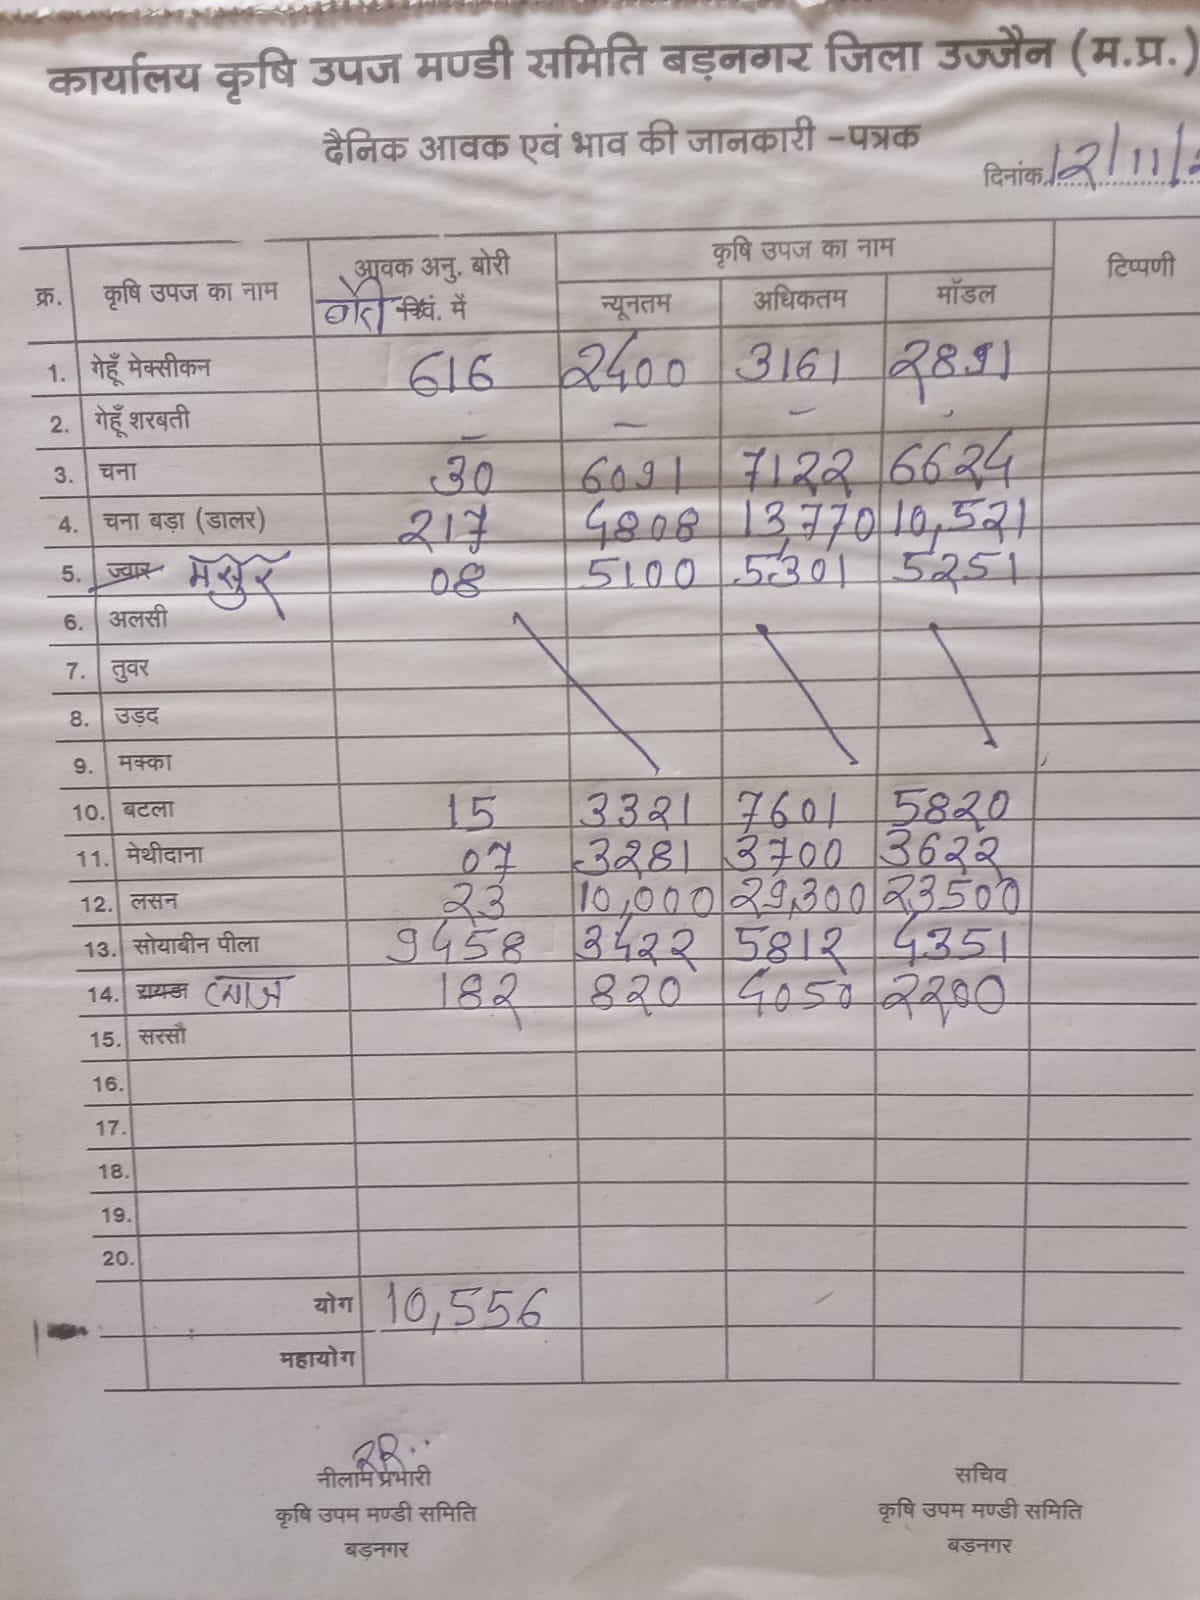 कार्यालय कृषि उपज मण्डी समिति बड़नगर जिला उज्जैन (म.प्र.)
दैनिक आवक एवं भाव की जानकारी -पत्रक
दिनांक 12/11/
क्र. कृषि उपज का नाम आवक अनु. बोरी कृषि उपज का नाम टिप्पणी
बोरी क्विं. में न्यूनतम अधिकतम मॉडल
1. गेहूँ मेक्सीकन 616 2400 3161 2891
2. गेहूँ शरबती - - - -
3. चना 30 6091 7122 6624
4. चना बड़ा (डालर) 217 4808 13,770 10,521
5. ज्वार मसुर 08 5100 5301 5251
6. अलसी
7. तुवर
8. उड़द
9. मक्का
10. बटला 15 3321 7601 5820
11. मेथीदाना 07 3281 3700 3622
12. लसन 23 10,000 29,300 23500
13. सोयाबीन पीला 9458 3422 5812 4351
14. रायडा 182 820 4050 2200
15. सरसौ
16.
17.
18.
19.
20.
योग 10,556
महायोग
नीलाम प्रभारी सचिव
कृषि उपम मण्डी समिति कृषि उपम मण्डी समिति
बड़नगर बड़नगर